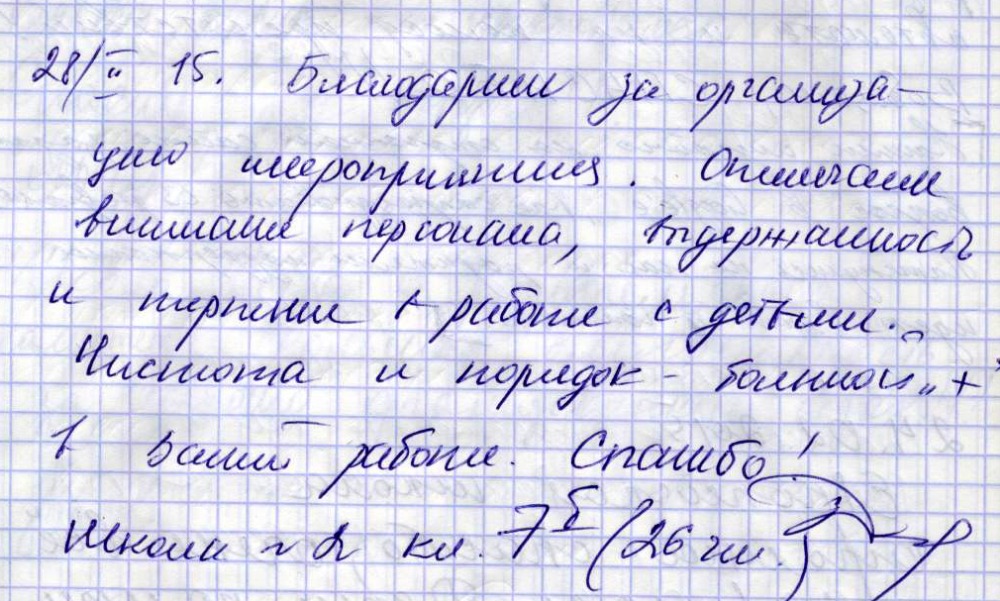 28/II 15. Благодарим за организа-
цию мероприятия. Отмечаем
внимание персонала, выдержанность
и терпение в работе с детьми.
Чистота и порядок - большой "+"
в вашей работе. Спасибо!
Школа № 2 кл. 7Б (26 чел.)